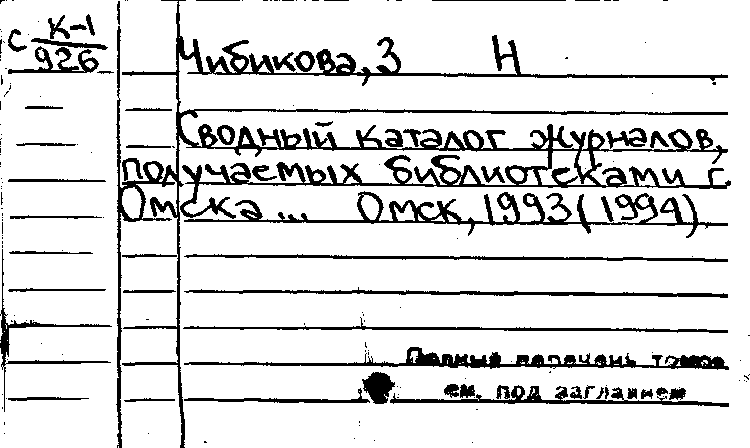 С К-1
926
Чибикова, З Н
Сводный каталог журналов,
получаемых библиотеками г.
Омска... Омск, 1993 (1994)
Полный перечень томов
см. под заглавием